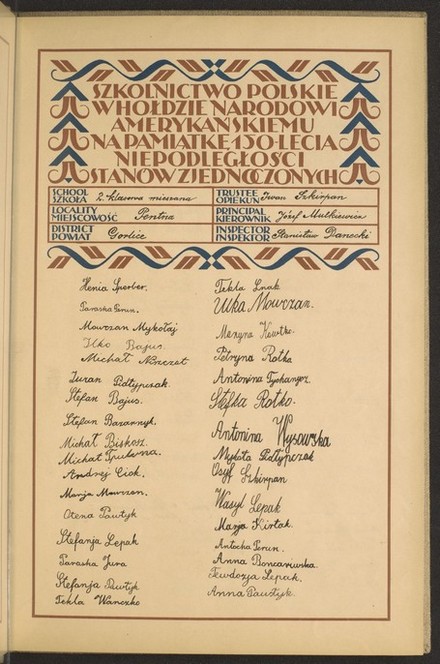 SZKOLNICTWO POLSKIE
W HOŁDZIE NARODOWI
AMERYKAŃSKIEMU
NA PAMIĄTKĘ 150-LECIA
NIEPODLEGŁOŚCI
STANÓW ZJEDNOCZONYCH
SCHOOL
SZKOŁA 2-klasowa mieszana
TRUSTEE
OPIEKUN Iwan Szkirpan
LOCALITY
MIEJSCOWOŚĆ Pentna
PRINCIPAL
KIEROWNIK Józef Mulkiewicz
DISTRICT
POWIAT Gorlice
INSPECTOR
INSPEKTOR Stanisław Danecki
Henia Sperber.
Paraska Perun.
Mowczan Mykołaj
Ilko Bajus.
Michał
Juran Pełtypczak.
Stefan Bajus.
Stefan
Michał Biskosz.
Michał
Andrej Ciok.
Marja Mowczan.
Ołena Pawłyk
Stefanja Łepak
Paraska Jura
Stefanja Pawłyk
Tekla Wanczko
Tekla
Ulka Mowczan.
Maryna
Petryna Rotka
Antonina
Stefka Rotko.
Antonina Wysowska
Mykoła Pełtypczak
Osyf Szkirpan
Wasyl Łepak
Marja
Antocha Perun.
Anna
Tewdozja Łepak.
Anna Pawłyk.